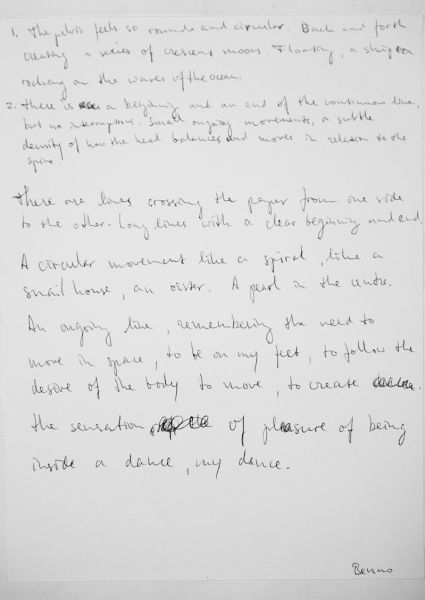 1. The pelvis feels so round and circular. Back and forth
creating a series of crescent moons. Floating, a ship
rocking on the waves of the ocean.
2. There is a begining and an end of the continuous line,
but no interruptions. Small ongoing movements, a subtle
density of how the head balances and moves in relation to the
spine.
There are lines crossing the paper from one side
to the other. Long lines with a clear beginning and end.
A circular movement like a spiral, like a
snail house, an oister. A pearl in the centre.
An ongoing line, remembering the need to
move in space, to be on my feet, to follow the
desire of the body to move, to create
the sensation of pleasure of being
inside a dance, my dance.
Benno